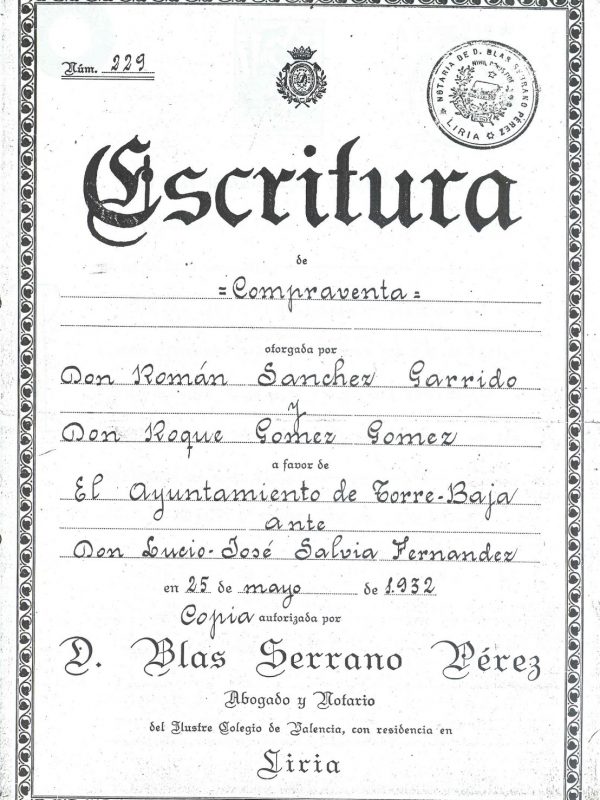 Núm. 229
NOTARIA DE D. BLAS SERRANO PÉREZ
LIRIA
Escritura
de
=Compraventa=
otorgada por
Don Román Sanchez Garrido
y
Don Roque Gomez Gomez
a favor de
El Ayuntamiento de Torre-Baja
ante
Don Lucio-José Salvia Fernandez
en 25 de mayo de 1.932
Copia autorizada por
D. Blas Serrano Pérez
Abogado y Notario
del Ilustre Colegio de Valencia, con residencia en
Liria